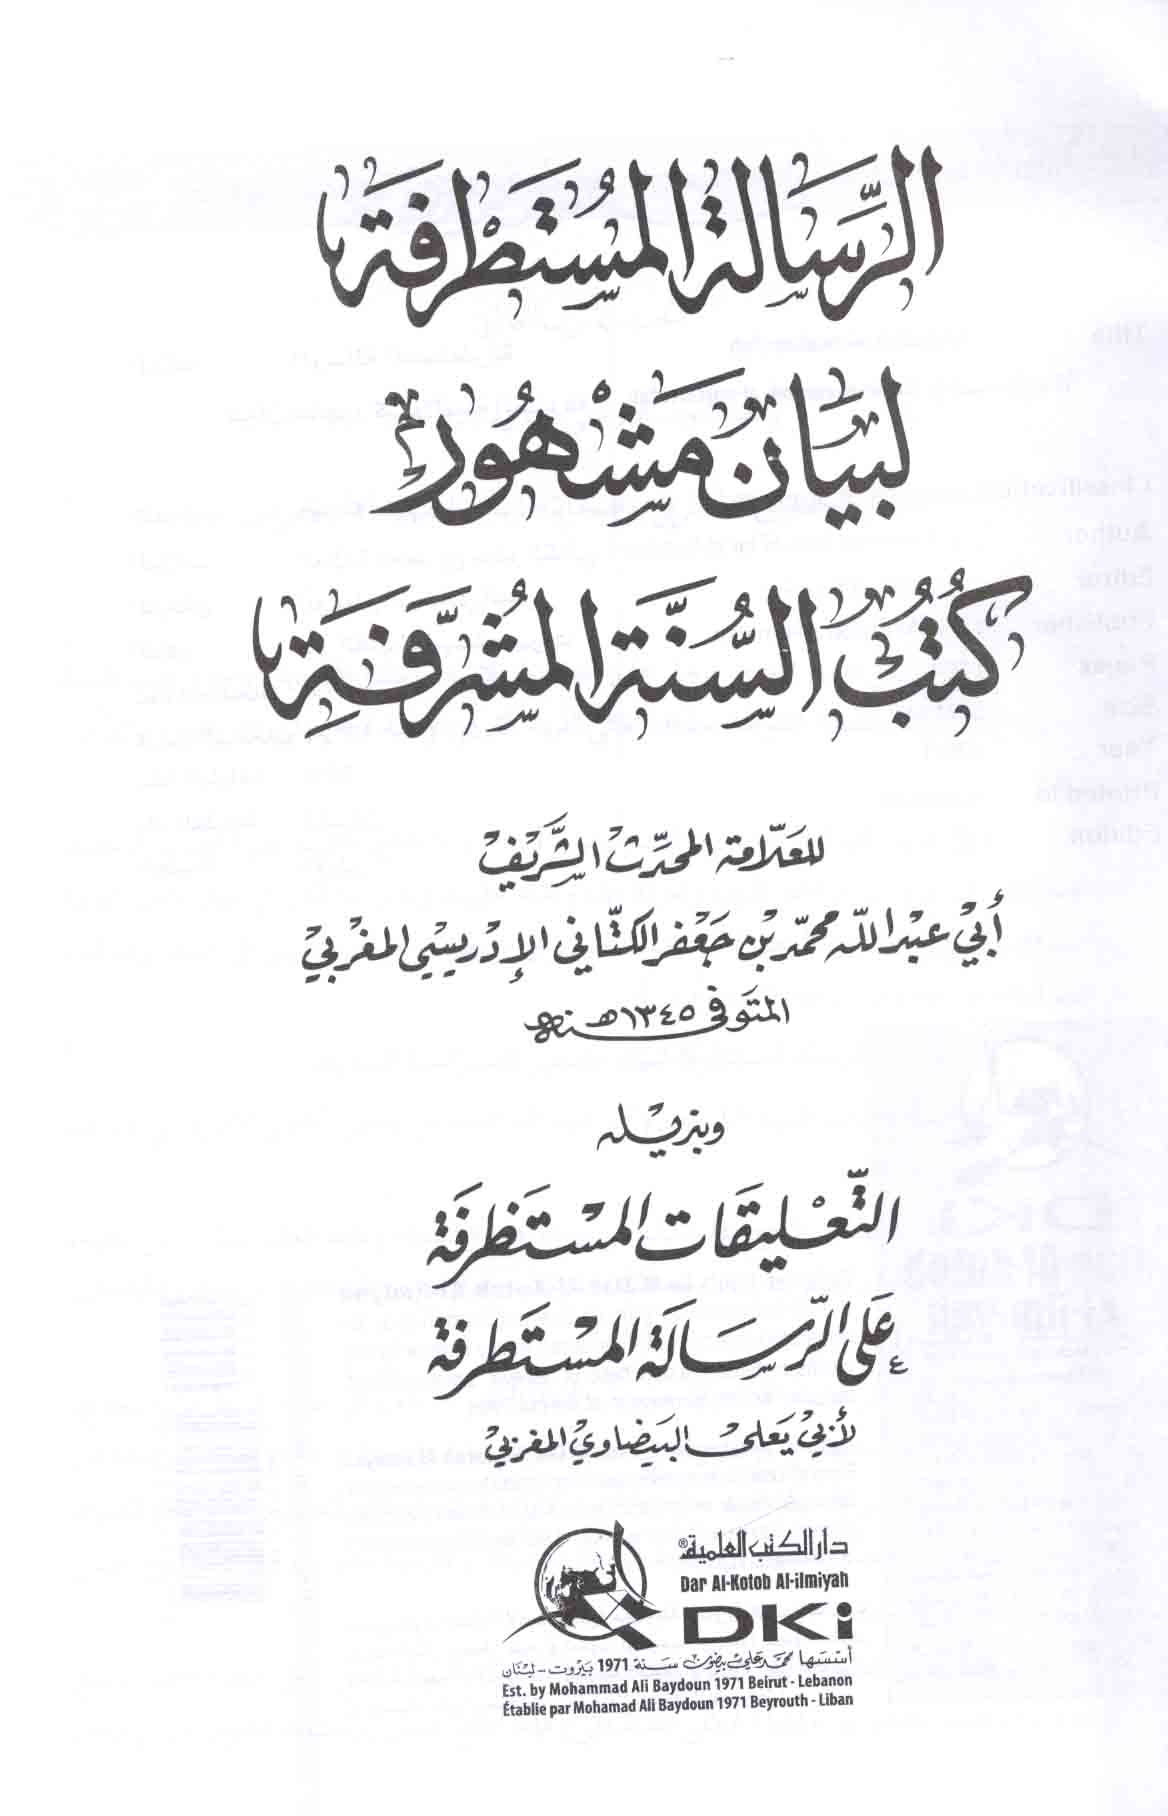 الرِّسَالة المُسْتَطْرفَة
لبَيَان مَشْهُور
كُتُبُ السُّنَّة المُشرَّفَةِ
للعَلّامة المحدِّث الشَّرَيْف
أَبيْ عبد اللّه محمّد بْن جَعْفر الكَتَّاني الإدْريسي المَغْربيْ
المتَوفى ١٣٤٥هـ سنة
وبذيْله
التَّعْليقَات المسْتَظرفَة
عَلى الرّسَالَة المسْتَطرفَة
لأَبيْ يَعلىْ البَيْضاويْ المغْربيْ
دار الكتب العلمية®
Dar Al-Kotob Al-ilmiyah
DKi
أسسَها محمَد علي بيضون سَنة 1971 بيروت - لبنان
Est. by Mohammad Ali Baydoun 1971 Beirut - Lebanon
Établie par Mohamad Ali Baydoun 1971 Beyrouth - Liban